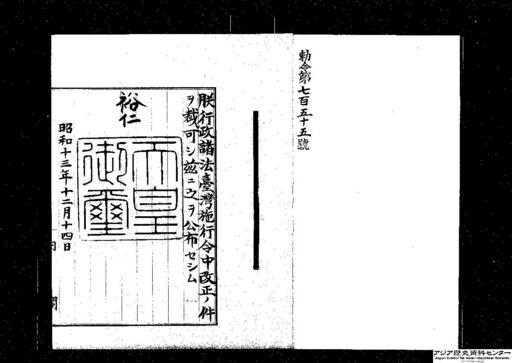 勅令第七百五十五號
朕行政諸法臺灣施行令中改正ノ件
ヲ裁可シ茲ニ之ヲ公布セシム
裕仁
天皇
御璽
昭和十三年十二月十四日
内閣
アジア歴史資料センター
Japan Center for Asian Historical Records